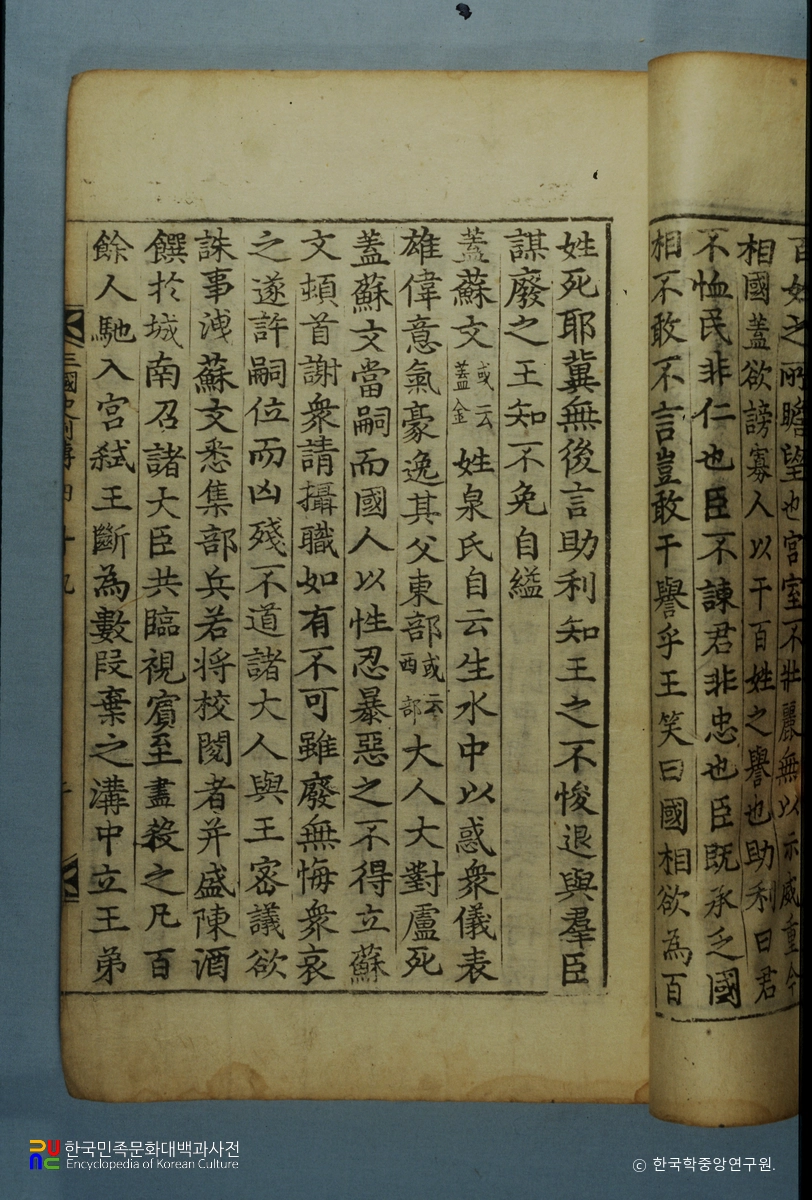 百姓之所瞻望也宮室不壯麗無以示威重今
相國蓋欲謗寡人以干百姓之譽也助利曰君
不恤民非仁也臣不諫君非忠也臣既承乏國
相不敢不言豈敢干譽乎王笑曰國相欲為百
姓死耶冀無後言助利知王之不悛退與羣臣
謀廢之王知不免自縊
蓋蘇文或云蓋金姓泉氏自云生水中以惑衆儀表
雄偉意氣豪逸其父東部或云西部大人大對盧死
蓋蘇文當嗣而國人以性忍暴惡之不得立蘇
文頓首謝衆請攝職如有不可雖廢無悔衆哀
之遂許嗣位而凶殘不道諸大人與王密議欲
誅事洩蘇文悉集部兵若將校閱者并盛陳酒
饌於城南召諸大臣共臨視賓至盡殺之凡百
餘人馳入宮弑王斷為數段棄之溝中立王弟
三國史列傳四十九
한국민족문화대백과사전
Encyclopedia of Korean Culture
© 한국학중앙연구원.